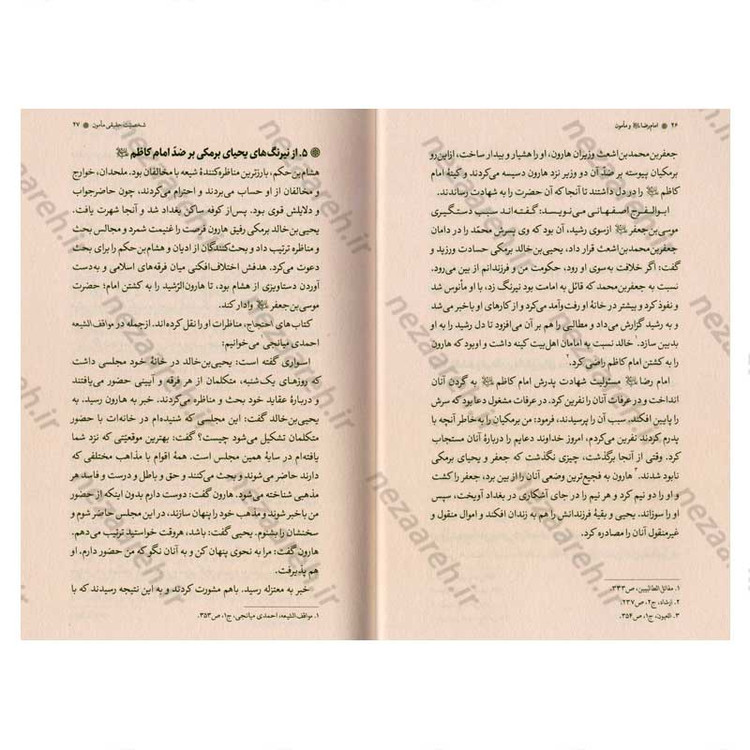 ۲۶ امام رضا و مأمون
جعفر بن محمد بن اشعث وزیران هارون، او را هشیار و بیدار ساخت، از این رو
برمکیان پیوسته بر ضدّ آن دو وزیر نزد هارون دسیسه می‌کردند و کینهٔ امام
کاظم را در دل داشتند تا آنجا که آن حضرت را به شهادت رساندند.
ابوالفرج اصفهانی می‌نویسد: گفته‌اند سبب دستگیری
موسی بن جعفر از سوی رشید، آن بود که وی پسرش محمّد را در دامان
جعفر بن محمد بن اشعث قرار داد، یحیی بن خالد برمکی حسادت ورزید و
گفت: اگر خلافت به سوی او رود، حکومت من و فرزندانم از بین می‌رود.
نسبت به جعفر بن محمد که قائل به امامت بود نیرنگ زد، با او مأنوس شد
و نفوذ کرد و بیشتر در خانهٔ او رفت‌وآمد می‌کرد و از کارهای او باخبر می‌شد
و به رشید گزارش می‌داد و مطالبی را هم بر آن می‌افزود تا دل رشید را به او
بدبین سازد.۱ خالد نسبت به امامان اهل بیت کینه داشت و او بود که هارون
را به کشتن امام کاظم راضی کرد.۲
امام رضا مسئولیت شهادت پدرش امام کاظم به گردن آنان
انداخت و در عرفات آنان را نفرین کرد. در عرفات مشغول دعا بود که سرش
را پایین افکند، سبب آن را پرسیدند، فرمود: من برمکیان را به خاطر آنچه با
پدرم کردند نفرین می‌کردم، امروز خداوند دعایم را دربارهٔ آنان مستجاب
کرد. وقتی از آنجا برگذشت، چیزی نگذشت که جعفر و یحیای برمکی
نابود شدند.۳ هارون به فجیع‌ترین وضعی آنان را از بین برد، جعفر را کشت
و او را دو نیم کرد و هر نیم را در جای آشکاری در بغداد آویخت، سپس
او را سوزاند. یحیی و بقیهٔ فرزندانش را هم به زندان افکند و اموال منقول و
غیرمنقول آنان را مصادره کرد.
۱. مقاتل الطالبیین، ص۳۳۳.
۲. ارشاد، ج۲، ص۲۳۷.
۳. العیون، ج۱، ص۳۵۴.
شخصیت حقیقی مأمون ۲۷
۵. از نیرنگ‌های یحیای برمکی بر ضدّ امام کاظم
هشام بن حکم، بارزترین مناظره‌کنندهٔ شیعه با مخالفان بود. ملحدان، خوارج
و مخالفان از او حساب می‌بردند و احترام می‌کردند، چون حاضرجواب
و دلایلش قوی بود. پس از کوفه ساکن بغداد شد و آنجا شهرت یافت.
یحیی بن خالد برمکی رفیق هارون فرصت را غنیمت شمرد و مجالس بحث
و مناظره ترتیب داد و بحث‌کنندگان از ادیان و هشام بن حکم را برای بحث
دعوت می‌کرد. هدفش اختلاف‌افکنی میان فرقه‌های اسلامی و به‌دست
آوردن دستاویزی از هشام بود، تا هارون‌الرّشید را به کشتن امام: حضرت
موسی بن جعفر وادار کند.
کتاب‌های احتجاج، مناظرات او را نقل کرده‌اند. ازجمله در مواقف الشیعه
احمدی میانجی می‌خوانیم:
اسواری گفته است: یحیی بن خالد در خانهٔ خود مجلسی داشت
که روزهای یک‌شنبه، متکلمان از هر فرقه و آیینی حضور می‌یافتند
و دربارهٔ عقاید خود بحث و مناظره می‌کردند. خبر به هارون رسید، به
یحیی بن خالد گفت: این مجلسی که شنیده‌ام در خانه‌ات با حضور
متکلمان تشکیل می‌شود چیست؟ گفت: بهترین موقعیتی که نزد شما
یافته‌ام در سایهٔ همین مجلس است. همهٔ اقوام با مذاهب مختلفی که
دارند حاضر می‌شوند و بحث می‌کنند و حق و باطل و درست و فاسد هر
مذهبی شناخته می‌شود. هارون گفت: دوست دارم بدون اینکه از حضور
من باخبر شوند و مذهب خود را پنهان سازند، در این مجلس حاضر شوم و
سخنشان را بشنوم. یحیی گفت: باشد، هروقت خواستید ترتیب می‌دهم.
هارون گفت: مرا به نحوی پنهان کن و به آنان نگو که من حضور دارم. او
هم پذیرفت.
خبر به معتزله رسید. باهم مشورت کردند و به این نتیجه رسیدند که با
۱. مواقف الشیعه، احمدی میانجی، ج۱، ص۳۵۳.
nezaareh.ir